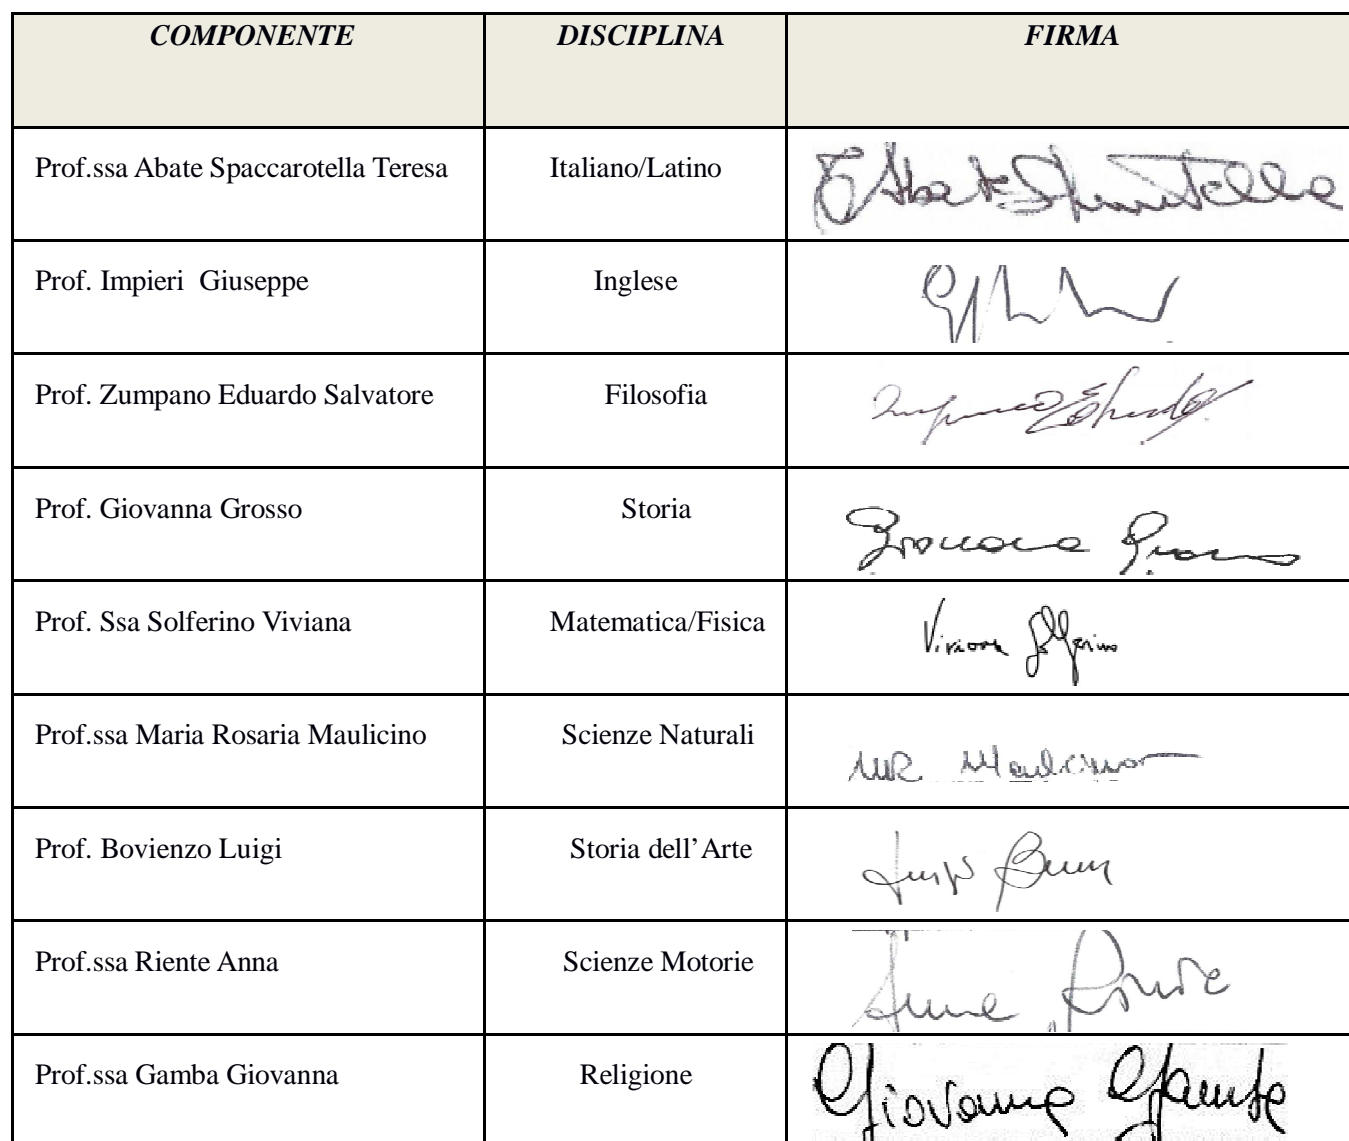 COMPONENTE DISCIPLINA FIRMA
Prof.ssa Abate Spaccarotella Teresa Italiano/Latino
Prof. Impieri Giuseppe Inglese
Prof. Zumpano Eduardo Salvatore Filosofia
Prof. Giovanna Grosso Storia Giovanna Grosso
Prof. Ssa Solferino Viviana Matematica/Fisica Viviana Solferino
Prof.ssa Maria Rosaria Maulicino Scienze Naturali MR Maulicino
Prof. Bovienzo Luigi Storia dell’Arte Luigi
Prof.ssa Riente Anna Scienze Motorie Anna Riente
Prof.ssa Gamba Giovanna Religione Giovanna Gamba